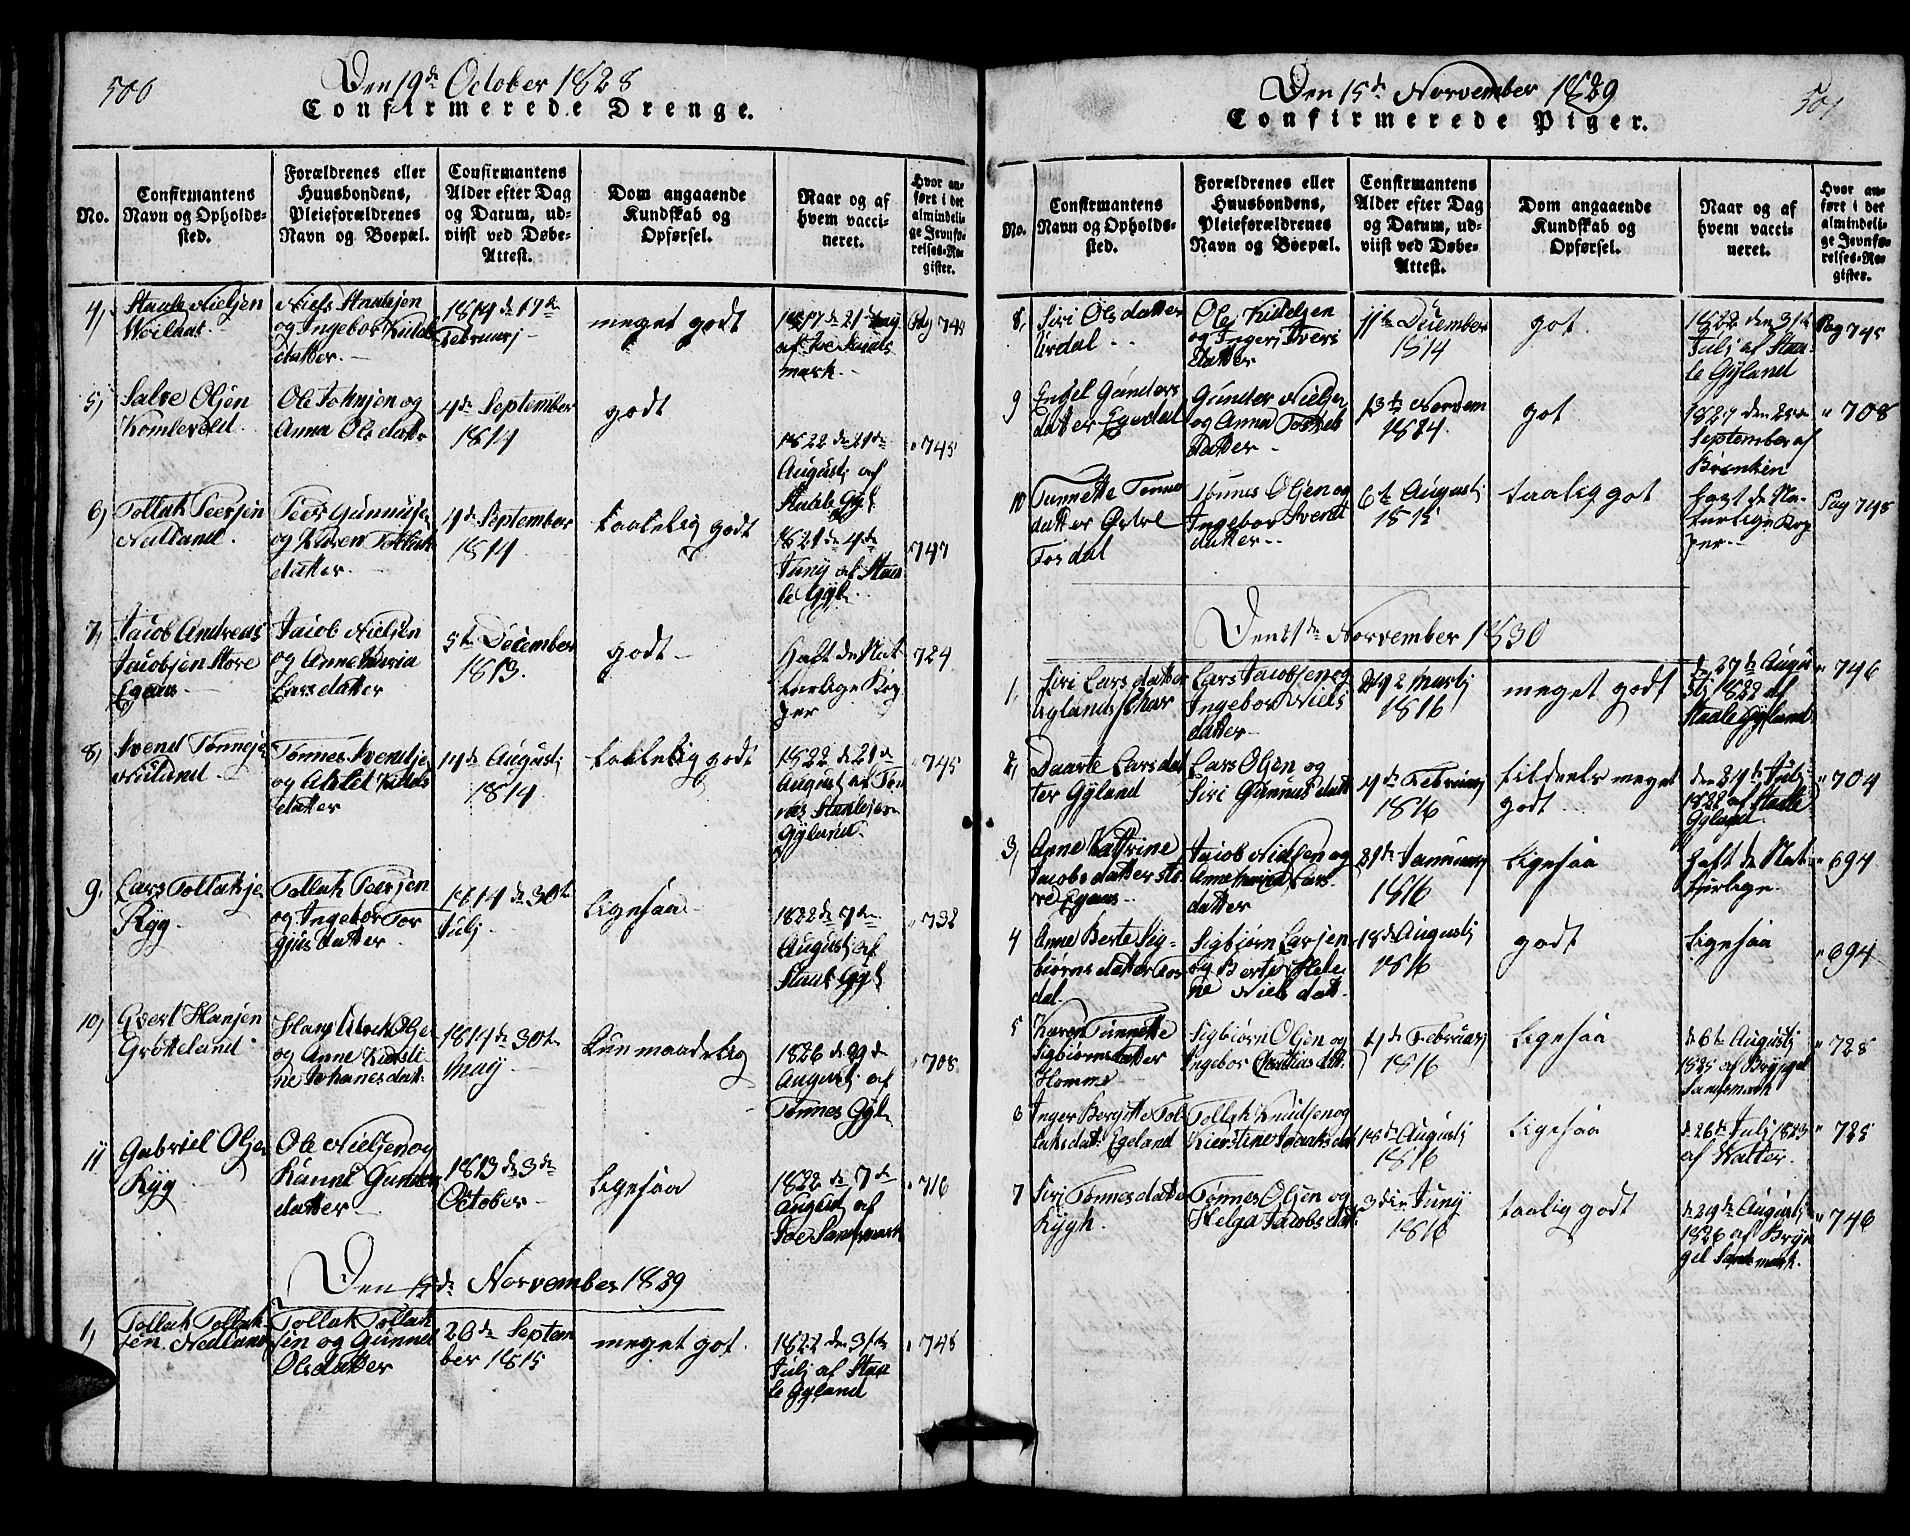 500
Den 19de October 1828
Confirmerede Drenge.
No.
Confirmantens
Navn og Opholds-
sted.
Forældrenes eller
Huusbondens,
Pleieforældrenes
Navn og Boepæl.
Confirmantens
Alder efter Dag
og Datum, ud-
viist ved Døbe-
Attest.
Dom angaaende
Kundskab og
Opførsel.
Naar og af
hvem vacci-
neret.
Hvor an-
ført i det
almindeli-
ge Jevnfø-
relses-Re-
gister.
4, Staale Nielsen
Niels Staalesen
og Ingebor
datter.
1814 de 17de
Februarj
meget godt
1817 de 21de
af
mark.
Pag 748
5, Salve Olsen
Komlevold.
Ole Johnsen og
Anna Olsdatt.
4de September
1814
godt
1822 de 21de
Augustj af
Staale Gyl
" 745
6, Tollak Peersen
Netland.
Peer Gunnusen
og Karen Tollak
datter.
4de September
1814
taalelig godt
1821 de 4de
Junij af Staa-
le Gyl.
" 747
7, Jacob Andreas
Jacobsen Store
Egaas
Jacob Nielsen
og Anne Maria
Larsdatter
5te December
1813.
godt
haft de Nat
turlige Kop
per
724
8, Svend Tønnesen
Netland.
Tønnes Svendsen
og Atlet
datter
14de Augustj
1814
taalelig godt
1822 de 21de
August af Tøn
nes Staalesen
Gyland.
" 745
9, Lars Tollaksen
Rÿg
Tollak Peersen
og Ingebor Tor
gjusdatter.
1814 de 30te
Julj
ligesaa
1822 de 7de
Augustj af
Staale Gyl
" 732
10, Gvert Hansen
Grøtteland
Hans Olsen
og Anne Kirsti
ne Johanesdat:
1814 de 30te
Maÿ
kun maadelig
1826 de 29de
Augustj af
Tønnes Gyl.
" 708
11 Gabriel Olsen
Rÿg
Ole Nielsen og
Gunder
datter
1813 de 3de
October
ligesaa
1822 de 7de
August af
Joe Sandsmark
" 716
Den 15de November 1829
1, Tollak Tollak-
sen Netland
Tollak Tollak
sen og Gunnel
Olsdatter
26de Septem
ber 1815
meget got.
1822 den 31te
Julj af Staa
le Gyland
" 748
Den 15de November 1829
501
Confirmerede Piger.
No.
Confirmantens
Navn og Opholds-
sted.
Forældrenes eller
Huusbondens,
Pleieforældrenes
Navn og Boepæl.
Confirmantens
Alder efter Dag
og Datum, ud-
viist ved Døbe-
Attest.
Dom angaaende
Kundskab og
Opførsel.
Naar og af
hvem vacci-
neret.
Hvor an-
ført i det
almindeli-
ge Jevnfø-
relses-Re-
gister.
8, Siri Olsdatter
Urdal
Ole
og Ingerj Ivers
datter
11te December
1814
got
1822 den 31te
Julj af Staa-
le Gÿland
Pag 745
9 Engel Gunders
datter Egedal
Gunder Nielsen
og Anna
datter
13te Novem
1814.
got
1827 den
September af
" 708
10 Tunnette Tønnes
datter Østre
Tosdal
Tønnes Olsen og
Ingebor Svend
datter
6te Augustj
1815
taalig got
haft de Na-
turlige Kop
per
Pag 748
Den 21de November 1830
1, Siri Larsdatter
Lars Jacobsen og
Ingebor Niels
datter
Martj
1816
meget godt
de 27de Augu
stj 1822 af
Staale Gÿland
" 746
2, Daarte Larsdat
ter Gÿland
Lars Olsen og
Siri Gunnusdatt
Februarj
1816
tildeels meget
godt.
den 24de Julj
1822 af Staale
Gÿland
" 704
3, Anne Kattrine
Jacobsdatter Sto-
re Egaas
Jacob Nielsen og
Anne Maria Lars
datter
21de Januarj
1816
ligesaa
haft de Nat
turlige
" 694
4 Anne Berte Sig-
biørnsdatter Tos
dal.
Sigbiørn Larsen
og Berte Hele
ne Nielsdatt.
18de Augustj
1816
godt
ligesaa
" 694
5 Karen Tunnette
Sigbiørnsdatter
Homme
Sigbiørn Olsen og
Ingebor
Februarj
1816
ligesaa
d 6te Augustj
1825 af Brÿngel
Sandsmark
" 728
6 Inger Bergitte Tol-
laksdat: Egeland
Tollak Knudsen og
Kierstine Isaaksdat
18de Augustj
1816
ligesaa
d 26te Julj 1823
af Walter.
" 725
7 Siri Tønnesdatter
Rÿgh.
Tønnes Olsen og
Helga Jacobsdat
3die Junÿ
1816
taalig godt
d 29de Augustj
1826 af Brÿn
gel Sandsmark.
" 746